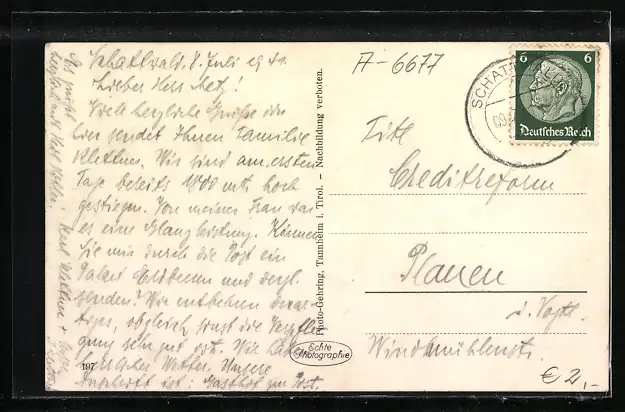 Schattwald, 8. Juli 1941
Lieber Herr Metz!
Viele herzliche Grüße von
hier sendet Ihnen Familie
Wir sind am ersten
Tage bereits 1800 mtr hoch
gestiegen. Von meiner Frau war
es eine Glanzleistung. Können
Sie mir durch die Post ein
Paket Erdbeeren und dergl.
senden? Wir entbehren derar-
tiges, obgleich sonst die Verpfle-
gung sehr gut ist. Wir haben
herrliches Wetter. Unsere
Anschrift ist: Gasthof zur Post.
Es grüßt
197
Photo-Gehring, Tannheim i. Tirol. – Nachbildung verboten.
Echte
Photographie
A-6677
6 6
Deutsches Reich
SCHATTWALD
09
Titl
Creditreform
Plauen
i. Vogtl.
Windmühlenstr.
€ 2,-